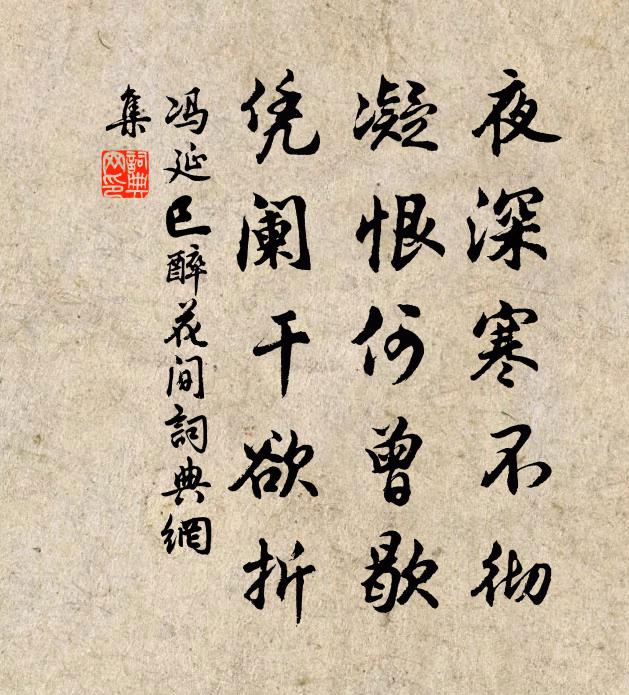 夜深寒不彻
凝恨何曾歇
凭阑干欲折
冯延巳醉花间词典網
集
詞典
网印